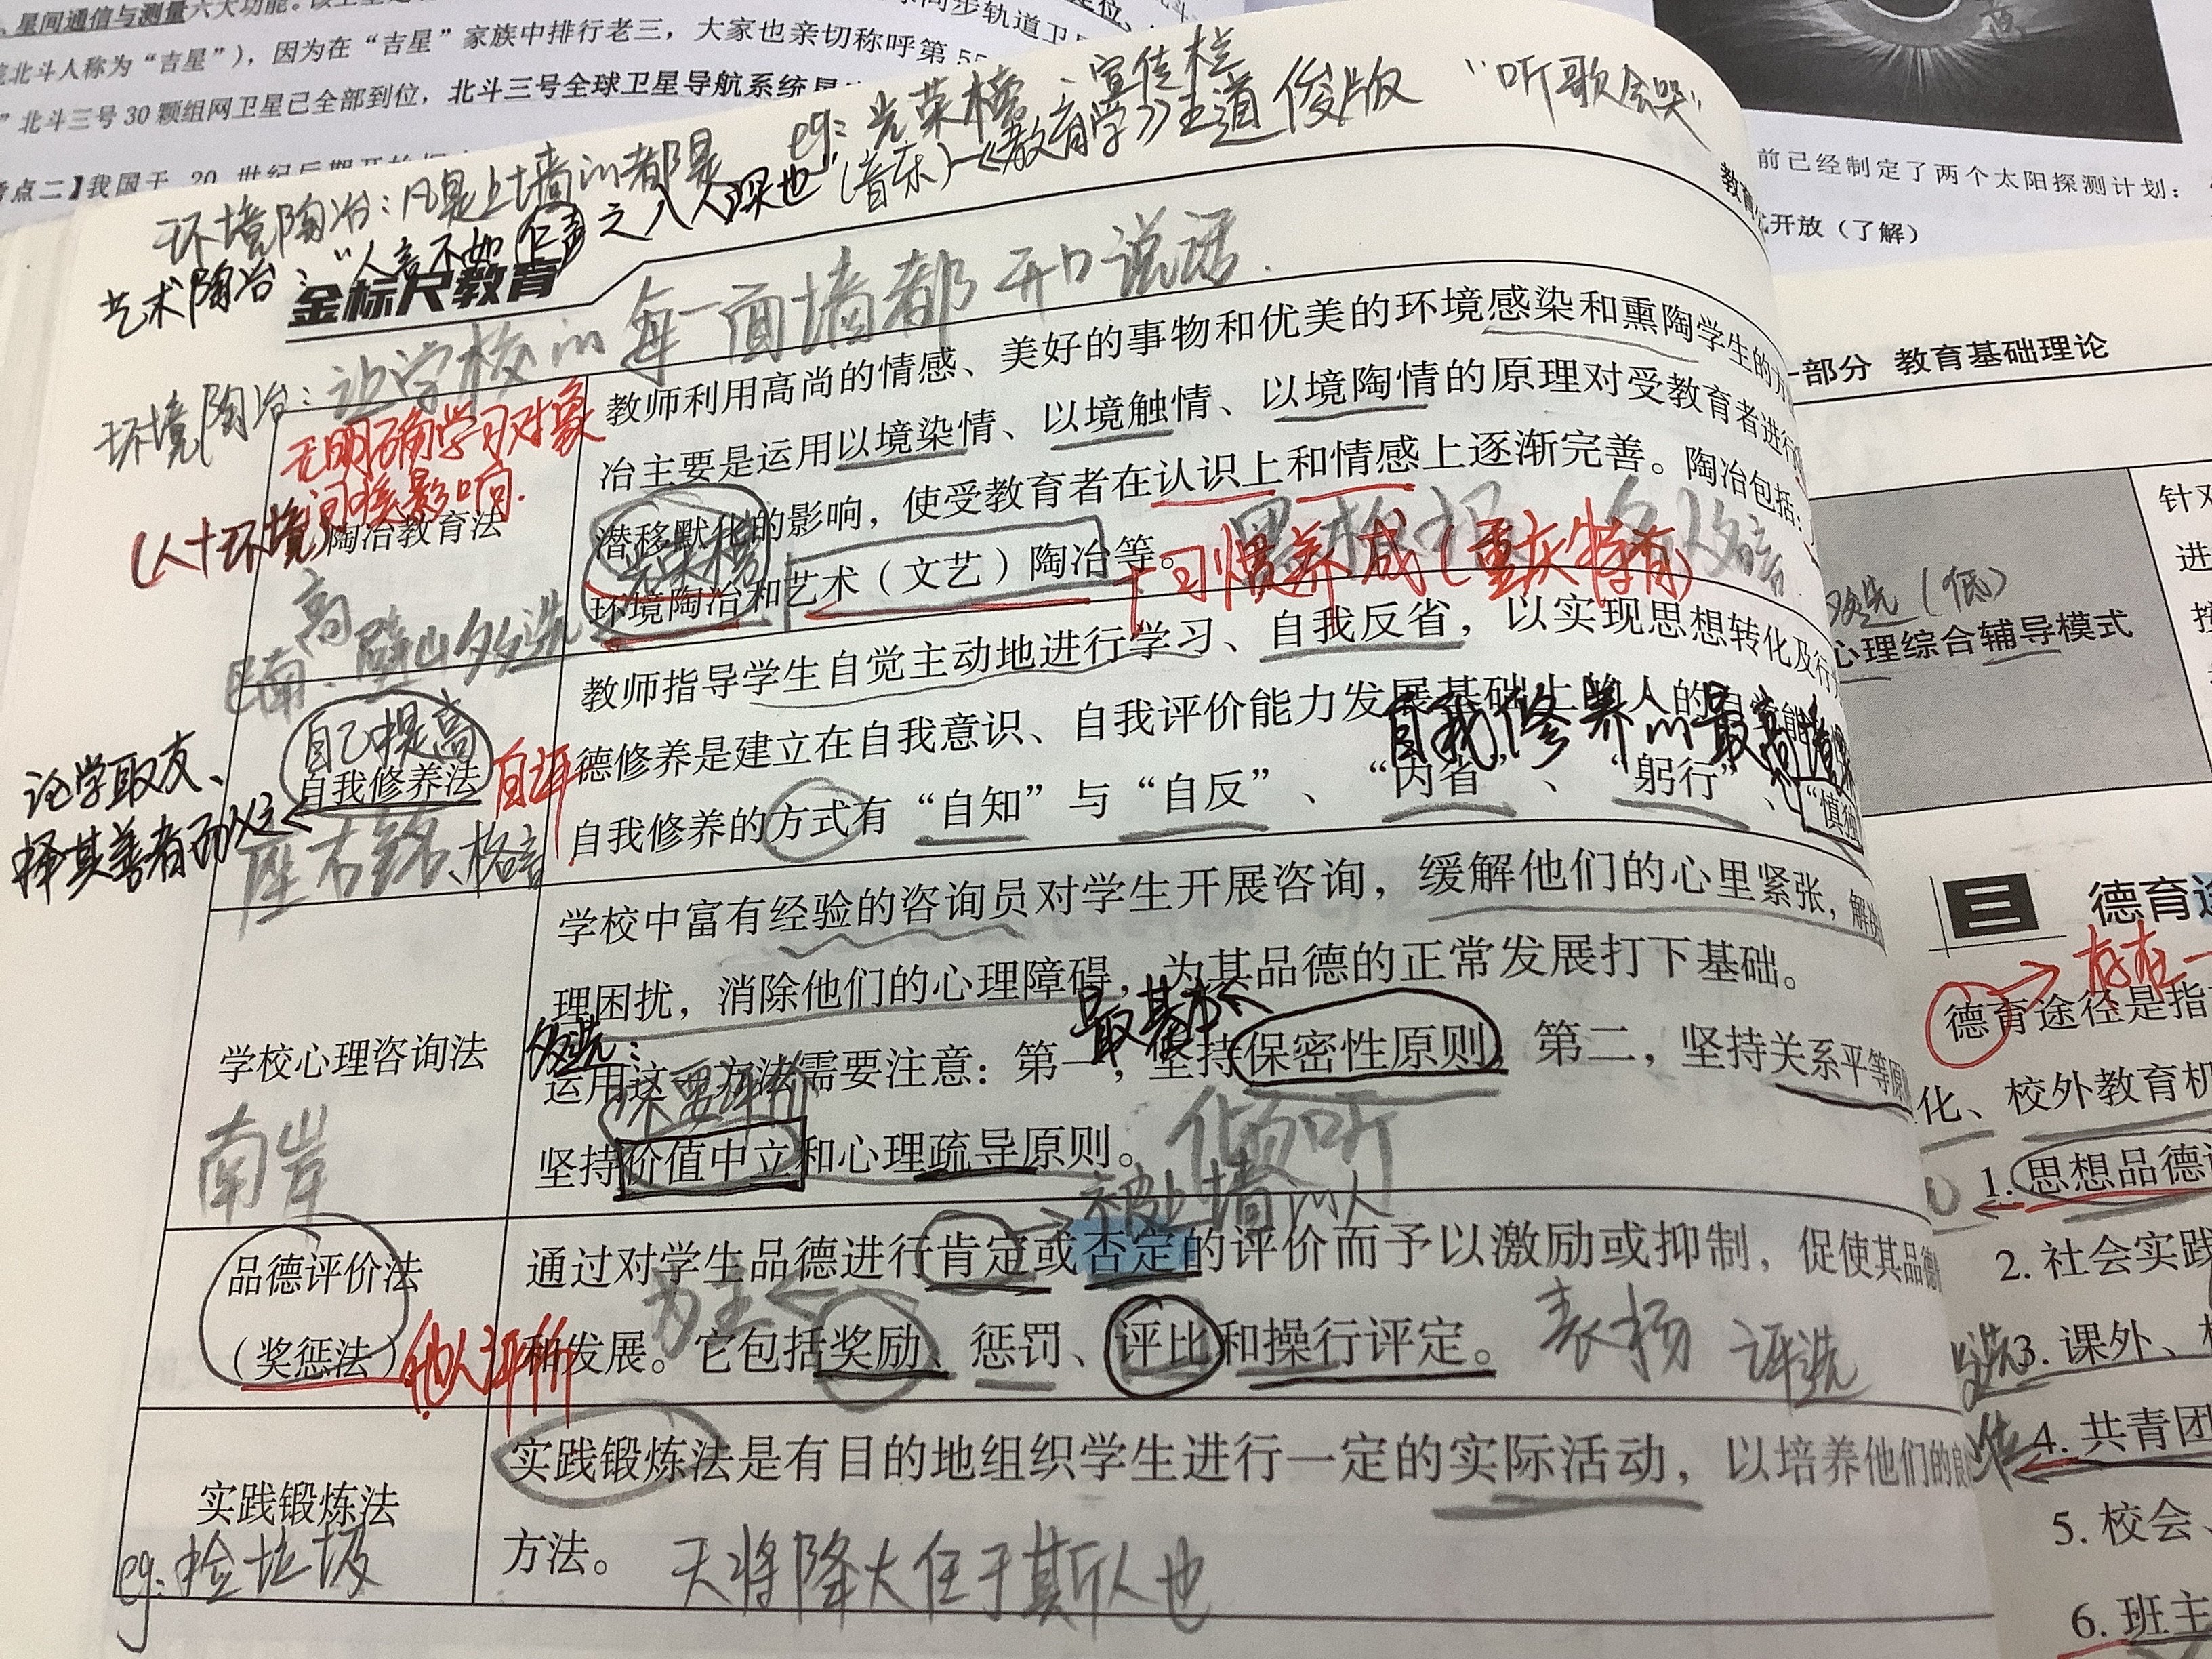 星间通信与测量六大功能。
北斗人称为“吉星”），因为在“吉星”家族中排行老三，大家也亲切称呼第55
”北斗三号30颗组网卫星已全部到位，北斗三号全球卫星导航系统
点二】我国于 20 世纪后期开始
前已经制定了两个太阳探测计划：
开放（了解）
环境陶冶：凡是上墙的都是 eg：光荣榜、宣传栏
艺术陶冶：“人言不如仁声之入人深也（音乐）—《教育学》王道俊版 “听歌会哭”
金标尺教育
环境陶冶：让学校的每一面墙都开口说话.
无明确学习对象
（人+环境）间接影响.
陶冶教育法
高
巴南、璧山多选
教师利用高尚的情感、美好的事物和优美的环境感染和熏陶学生的方
冶主要是运用以境染情、以境触情、以境陶情的原理对受教育者进行
潜移默化的影响，使受教育者在认识上和情感上逐渐完善。陶冶包括：
光荣榜
环境陶冶和艺术（文艺）陶冶等。
+习惯养成（重庆特有）
自己提高
自我修养法
自评
论学取友、
择其善者而从之
座右铭、格言
教师指导学生自觉主动地进行学习、自我反省，以实现思想转化及行
德修养是建立在自我意识、自我评价能力发展基础上的人的自觉能
自我修养的最高
自我修养的方式有“自知”与“自反”、“内省”、“躬行”、“慎独
学校心理咨询法
南岸
学校中富有经验的咨询员对学生开展咨询，缓解他们的心里紧张，解
理困扰，消除他们的心理障碍，为其品德的正常发展打下基础。
多选：
最基本
运用这一方法需要注意：第一，坚持保密性原则，第二，坚持关系平等原
不要评价
坚持价值中立和心理疏导原则。
倾听
被上墙的人
品德评价法
（奖惩法）
他人评价
通过对学生品德进行肯定或否定的评价而予以激励或抑制，促使其品德
为主
和发展。它包括奖励、惩罚、评比和操行评定。
表扬 评选
实践锻炼法
eg.捡垃圾
实践锻炼法是有目的地组织学生进行一定的实际活动，以培养他们的良
方法。
天将降大任于斯人也
部分 教育基础理论
多选（低）
心理综合辅导模式
针对
进
三 德育途
存在一
德育途径是指
化、校外教育机
1. 思想品德
2. 社会实践
多选
3. 课外、
4. 共青团
5. 校会、
6. 班主